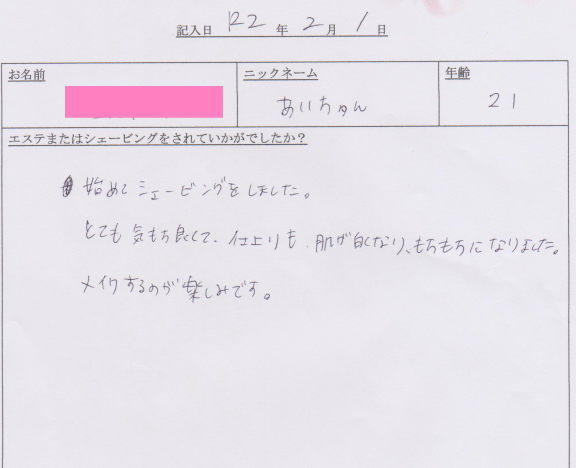 記入日 R2 年 2 月 1 日
お名前 ニックネーム 年齢
あいちゅん 21
エステまたはシェービングをされていかがでしたか?
始めてシェービングをしました。
とても気もち良くて、仕上りも、肌が白くなり、もちもちになりました。
メイクするのが楽しみです。